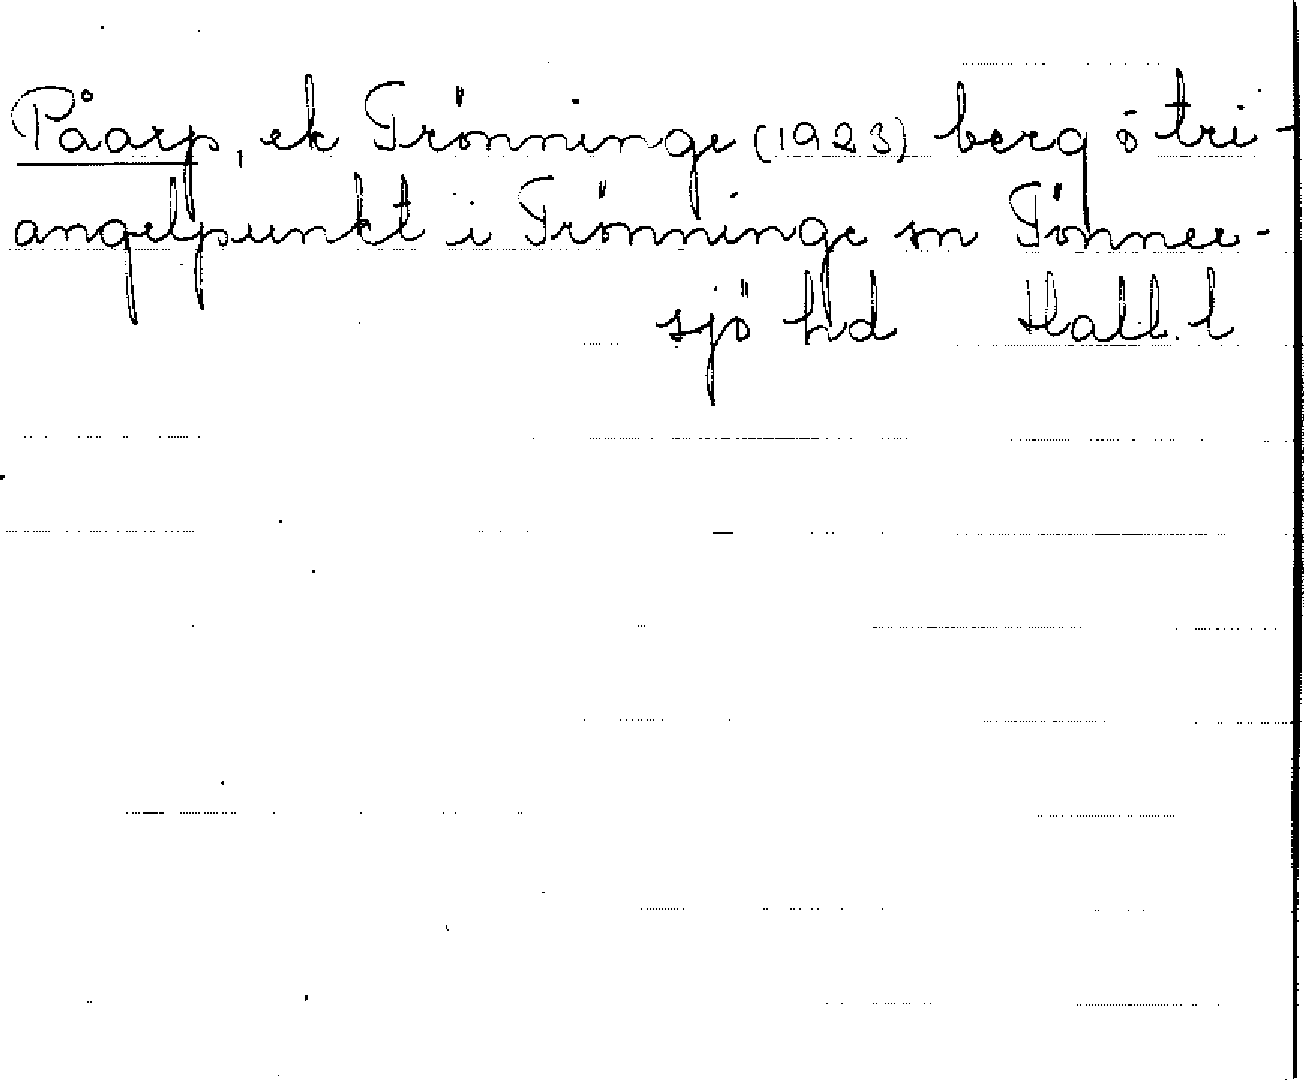 Påarp, ek Trönninge (1923) berg ö tri-
angelpunkt i Trönninge sn Tönner-
sjö hd Hall. l